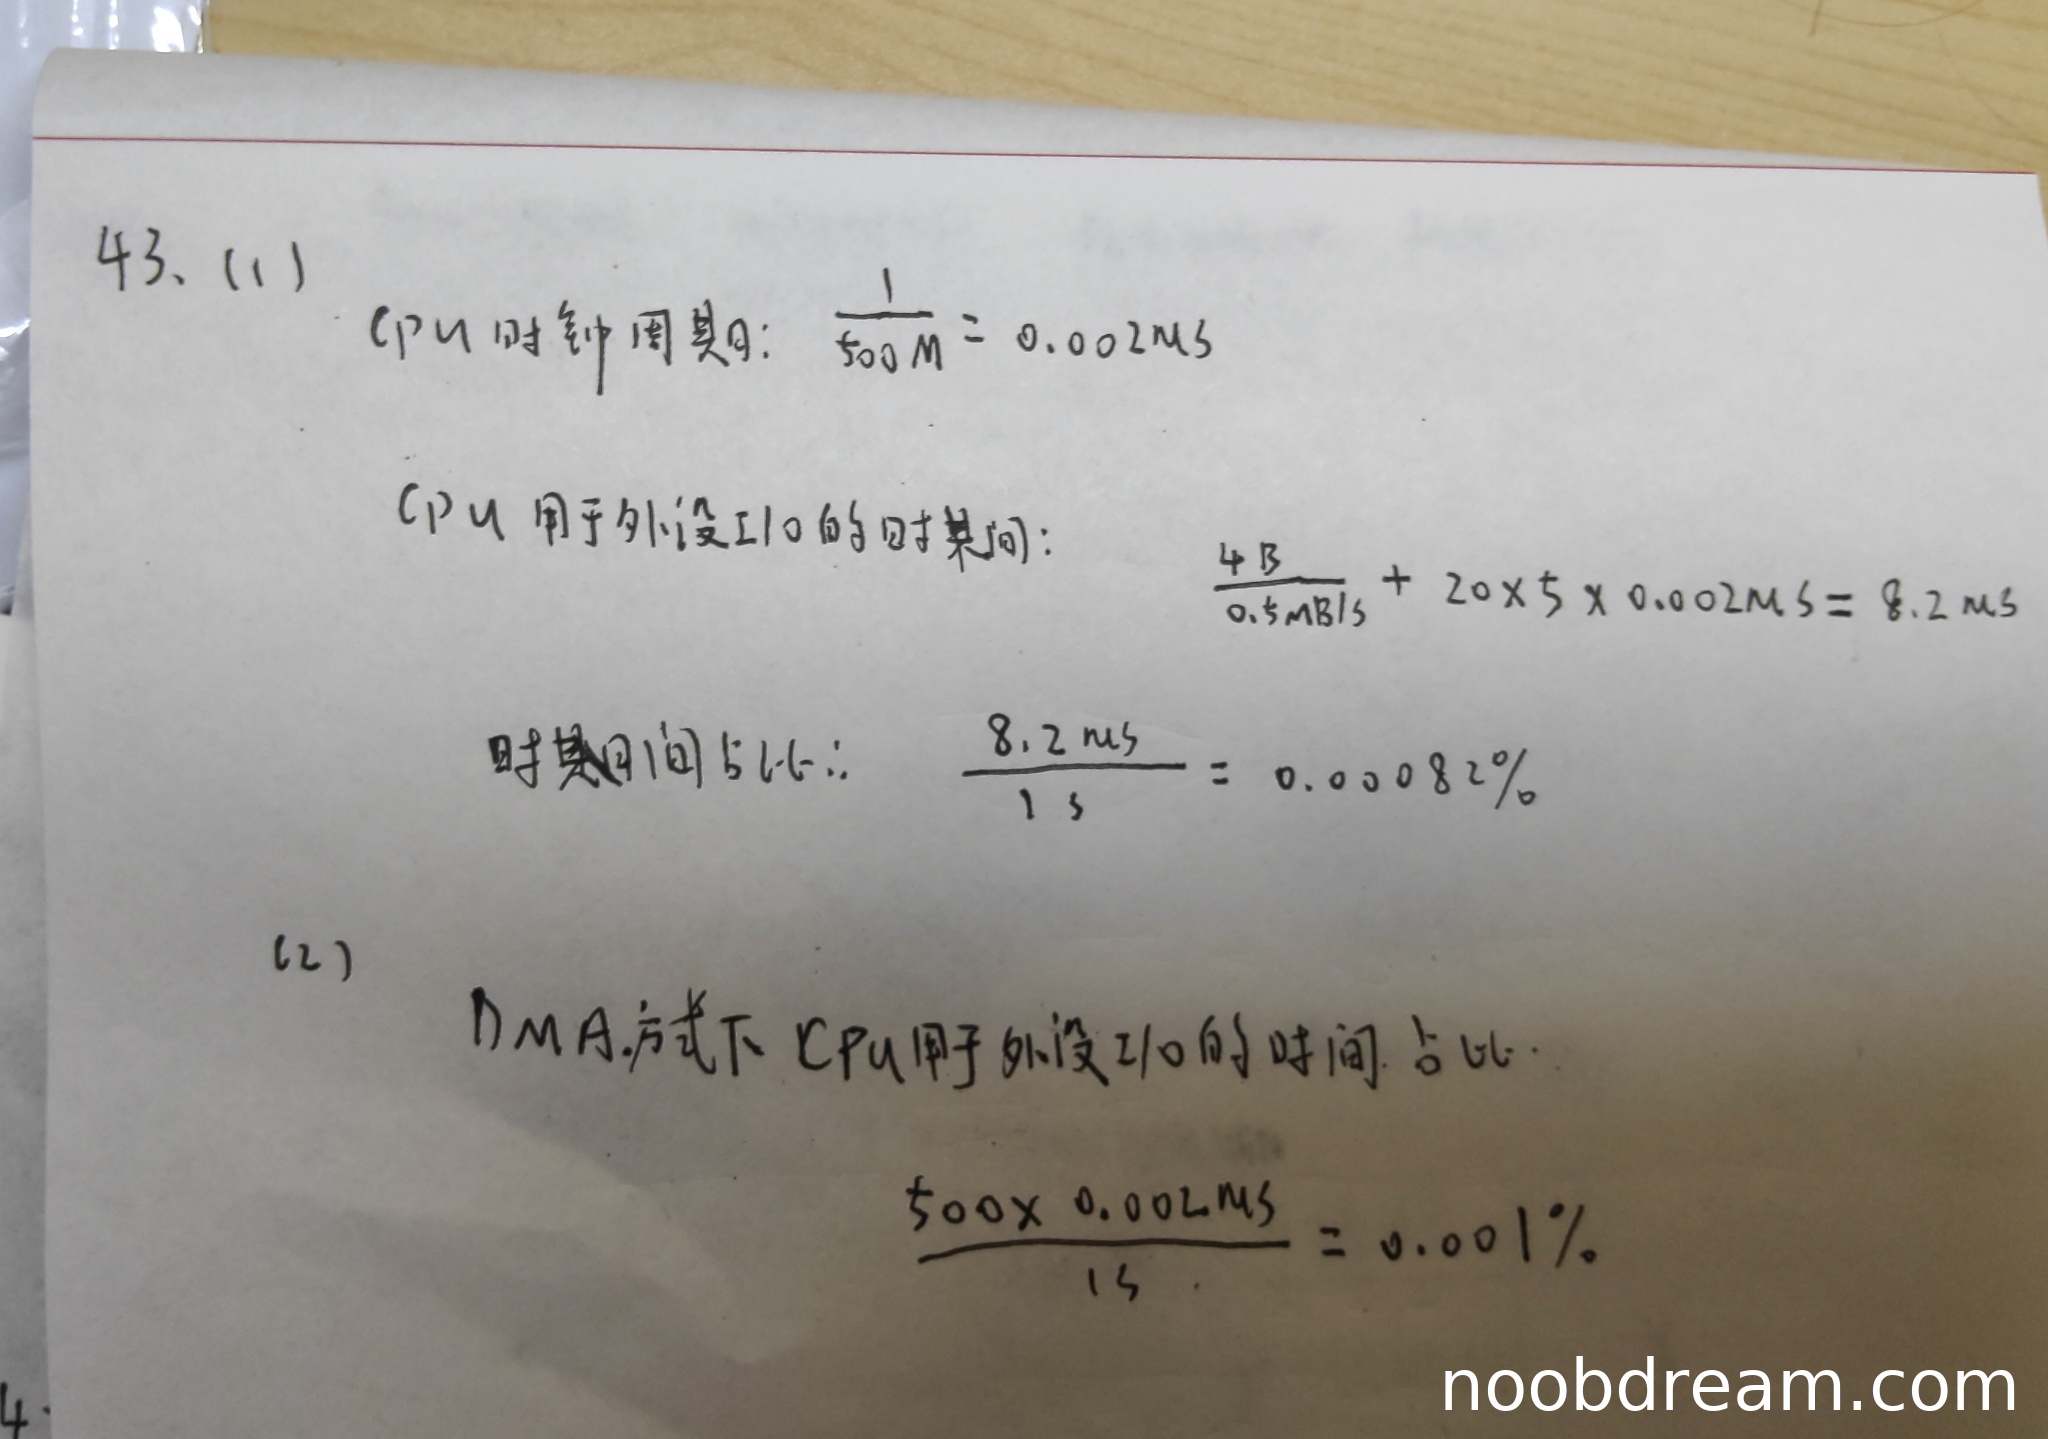 43、(1)
CPU时钟周期: 1/500M = 0.002μs
CPU用于外设I/O的时间:
4B/0.5MB/s + 20×5×0.002μs = 8.2μs
时间占比: 8.2μs/1s = 0.00082%
(2)
DMA方式下CPU用于外设I/O的时间占比.
500×0.002μs/1s = 0.001%
4.
noobdream.com